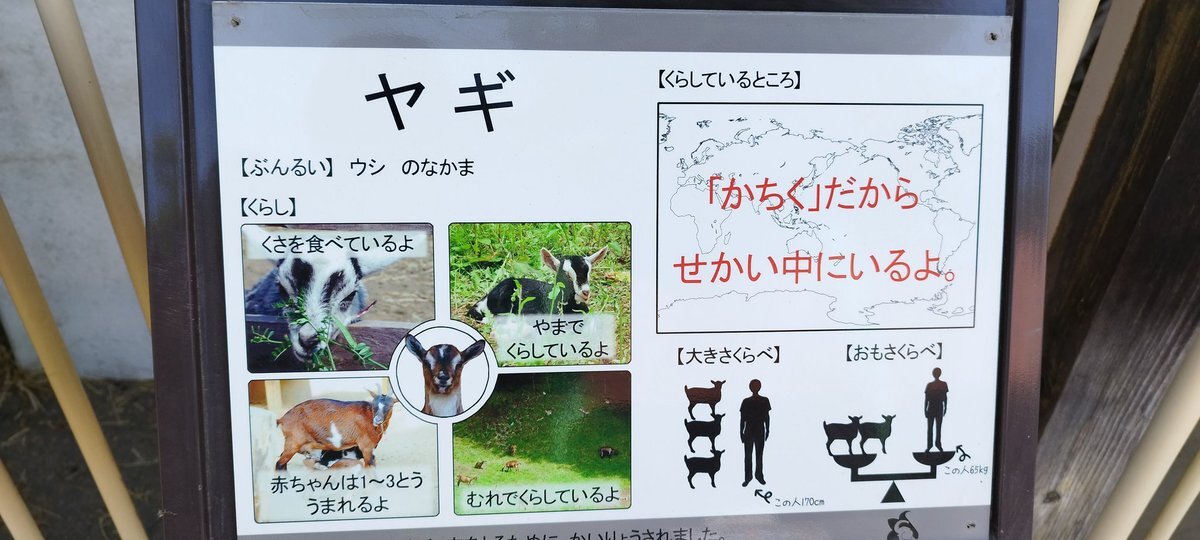 ヤギ
【ぶんるい】 ウシ のなかま
【くらし】
くさを食べているよ
やまで
くらしているよ
赤ちゃんは1～3とう
うまれるよ
むれでくらしているよ
【くらしているところ】
「かちく」だから
せかい中にいるよ。
【大きさくらべ】
この人170cm
【おもさくらべ】
この人65kg
ために かいりょうされました。